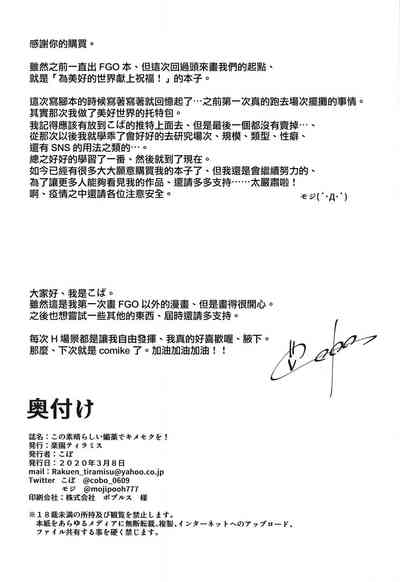 感謝你的購買。
雖然之前一直出 FGO 本、但這次回過頭來畫我們的起點、
就是「為美好的世界獻上祝福！」的本子。
這次寫腳本的時候寫著寫就回憶起了…之前第一次真的跑去場次擺攤的事情。
其實那次我做了美好世界的托特包。
我記得應該有放到こぱ的推特上面去、但是最後一個都沒有賣掉…、
從那次以後我就學乖了會好好的去研究場次、規模、類型、性癖、
還有 SNS 的用法之類的…。
總之好好的學習了一番、然後就到了現在。
如今已經有很多大大願意購買我的本子了、但我還是會繼續努力的、
為了讓更多人能夠看見我的作品、還請多多支持……太嚴肅啦！
啊、疫情之中還請各位注意安全。
モジ(´･Д･`)
大家好、我是こぱ。
雖然這是我第一次畫 FGO 以外的漫畫、但是畫得很開心。
之後也想嘗試一些其他的東西、屆時還請多支持。
每次 H 場景都是讓我自由發揮、我真的好喜歡喔、腋下。
那麼、下次就是 comike 了。加油加油加油！！
奥付け
誌名：この素晴らしい媚薬でキメセクを！
発行：楽園ティラミス
発行者：こぱ
発行日：２０２０年３月８日
mail：Rakuen_tiramisu@yahoo.co.jp
Twitter　こぱ　@cobo_0609
モジ　@mojipooh777
印刷会社：株式会社　ポプルス　様
※１８歳未満の所持及び観覧を禁止します。
本紙をあらゆるメディアに無断転載、複製、インターネットへのアップロード、
ファイル共有する事を硬く禁じます。